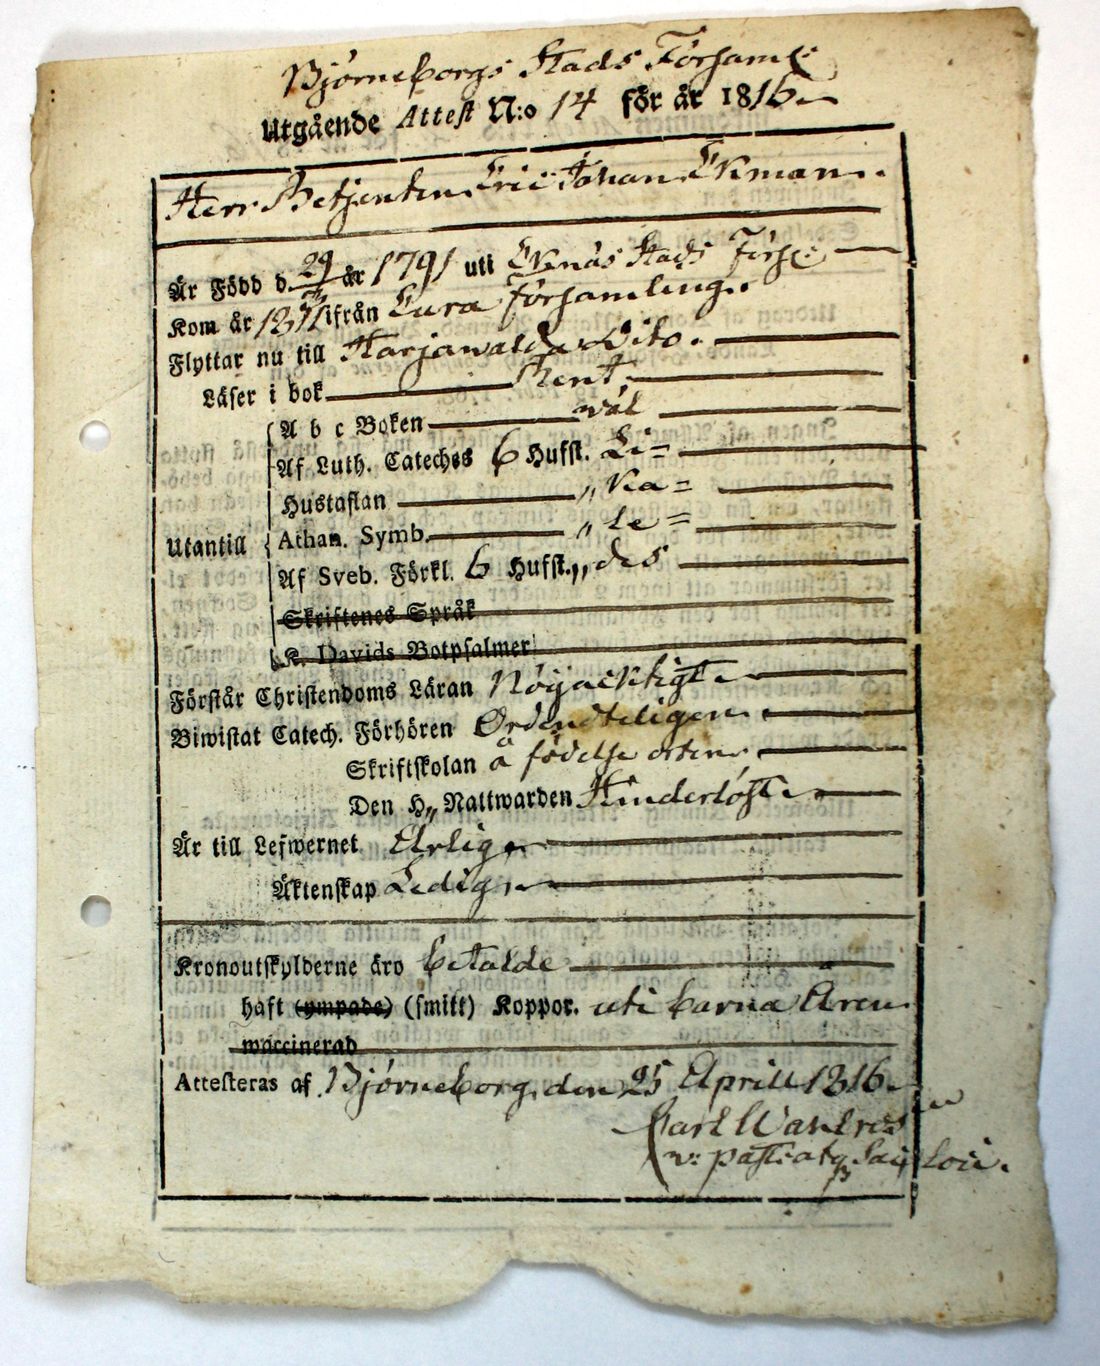 Björneborgs Stads Församl:
Utgående Attest N:o 14 för år 1816.
Herr Betjenten Eric Johan Ekman.
Är Född d. 29 år 1791 uti Ekenäs Stads Förs:
Kom år 1811 ifrån Eura Församling.
Flyttar nu till Harjawalda Dito.
Läser i bok Rent.
A b c Boken wäl
Af Luth. Cateches 6 Hufst. Li=
Hustaflan " ka=
Utantill Athan. Symb. " le=
Af Sveb. Förkl. 6 Hufst. " des
Skriftenes Språk
K. Davids Botpsalmer
Förstår Christendoms Läran Nöjacktigt.
Biwistat Catech. Förhören Ordendteligen.
Skriftskolan å födelse orten.
Den H. Nattwarden Hinderlöst.
Är till Lefwernet Ärlig.
Äktenskap Ledig.
Kronoutskylderne äro betalde
haft (ympade) (smitt) Koppor. uti barna Åren
waccinerad
Attesteras af Björneborg den 25 Aprill 1816.
Carl Wahlroos
v: past: